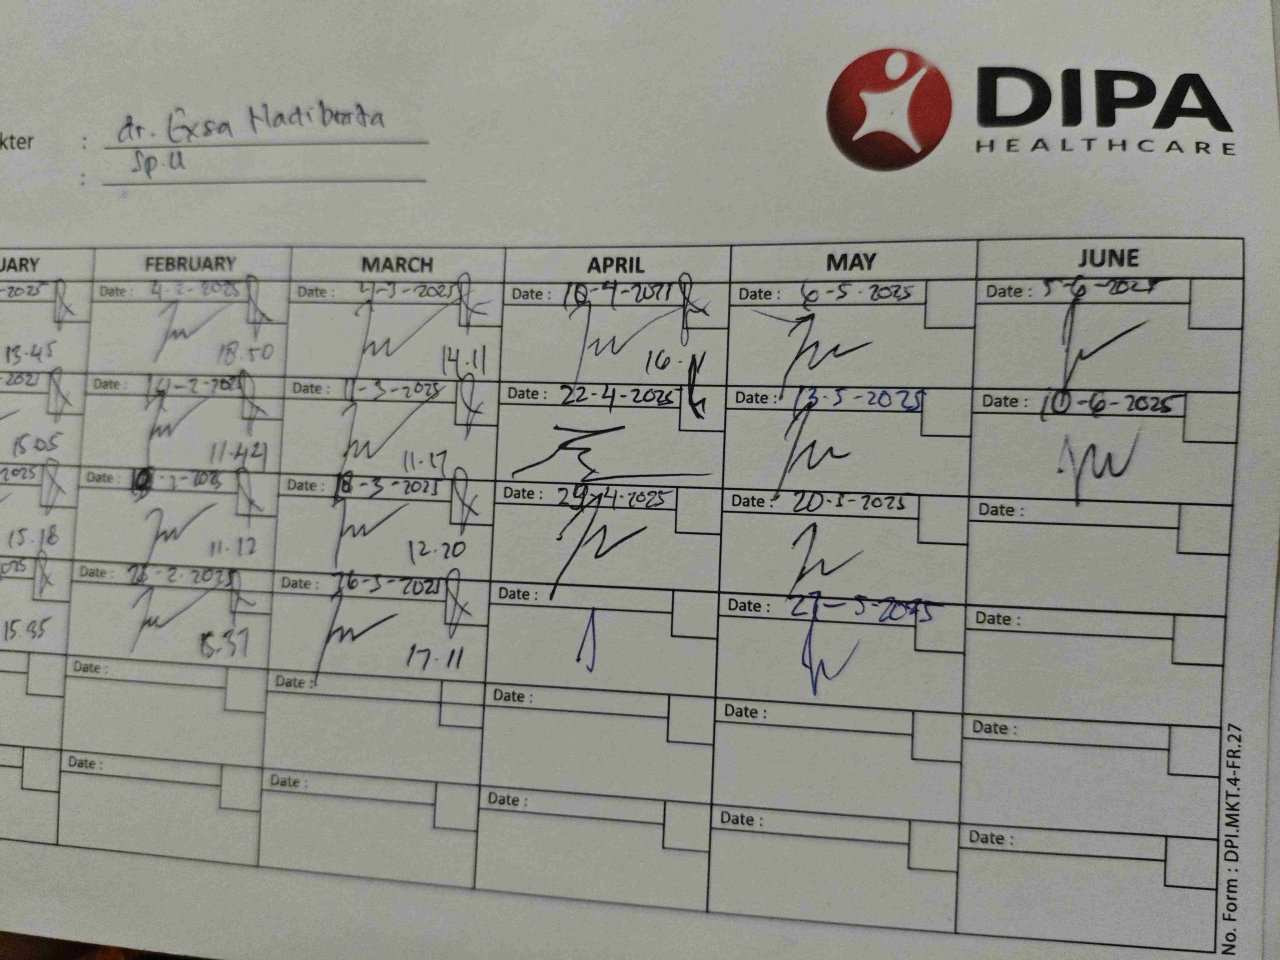 DIPA
HEALTHCARE
kter : dr. Exsa Hadibrata
: Sp.U
UARY FEBRUARY MARCH APRIL MAY JUNE
-2025 Date : 4-2-2025 Date : 4-3-2025 Date : 10-4-2021 Date : 6-5-2025 Date : 5-6-2025
13.45 18.50 14.11 16.
-2021 Date : 14-2-2025 Date : 11-3-2025 Date : 22-4-2025 Date : 13-5-2025 Date : 10-6-2025
15.05 11.421 11.17
2025 Date : Date : 18-3-2025 Date : 29-4-2025 Date : 20-5-2025 Date :
15.18 11.12 12.20
2025 Date : 26-2-2025 Date : 26-3-2025 Date : Date : 27-5-2025 Date :
15.35 17.11
Date : Date : Date : Date : Date :
Date : Date : Date : Date : Date :
No. Form : DPI.MKT.4-FR.27